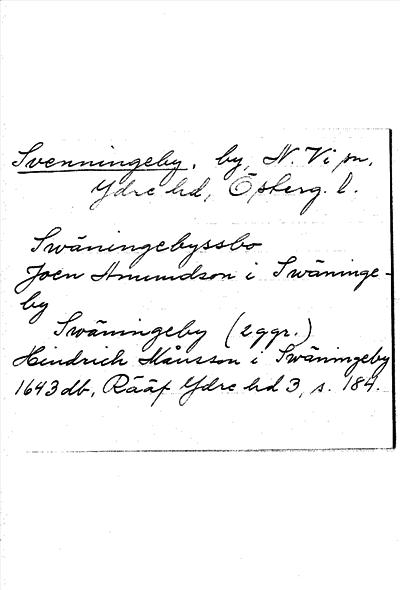 Svenningeby, by, N. Vi sn,
Ydre hd, Östergː l.
Swäningebyssbo
Joen Amundson i Swäninge-
by
Swäningeby (2ggr.)
Hindrich Månsson i Swäningeby
1643 db, Rääf Ydre hd 3, s. 184.